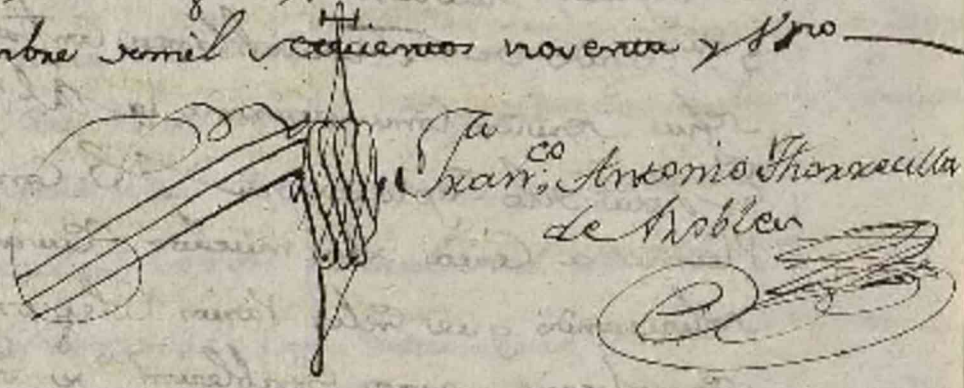 mbre de mil setecientos noventa y Uno
Fran.co Antonio Thorrecilla
de Robles